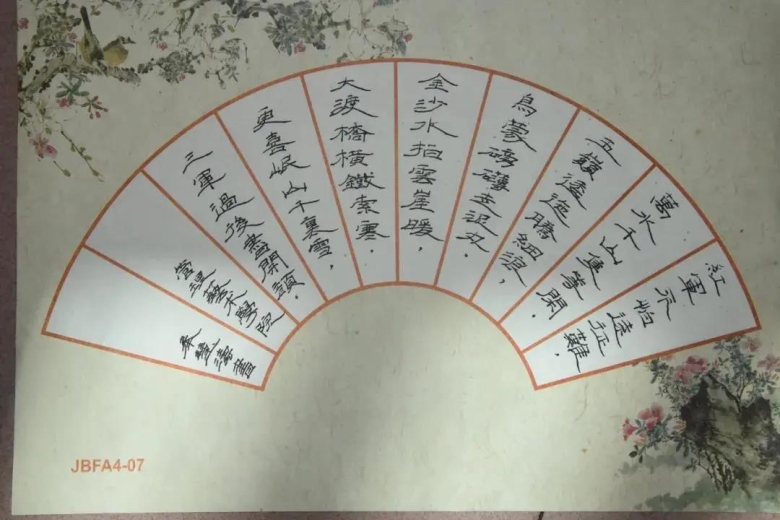 紅軍不怕遠征難，
萬水千山隻等閑．
五嶺逶迤騰細浪，
烏蒙磅礴走泥丸．
金沙水拍雲崖暖，
大渡橋橫鐵索寒．
更喜岷山千裏雪，
三軍過後盡開顏．
管理藝術學院
書
JBFA4-07